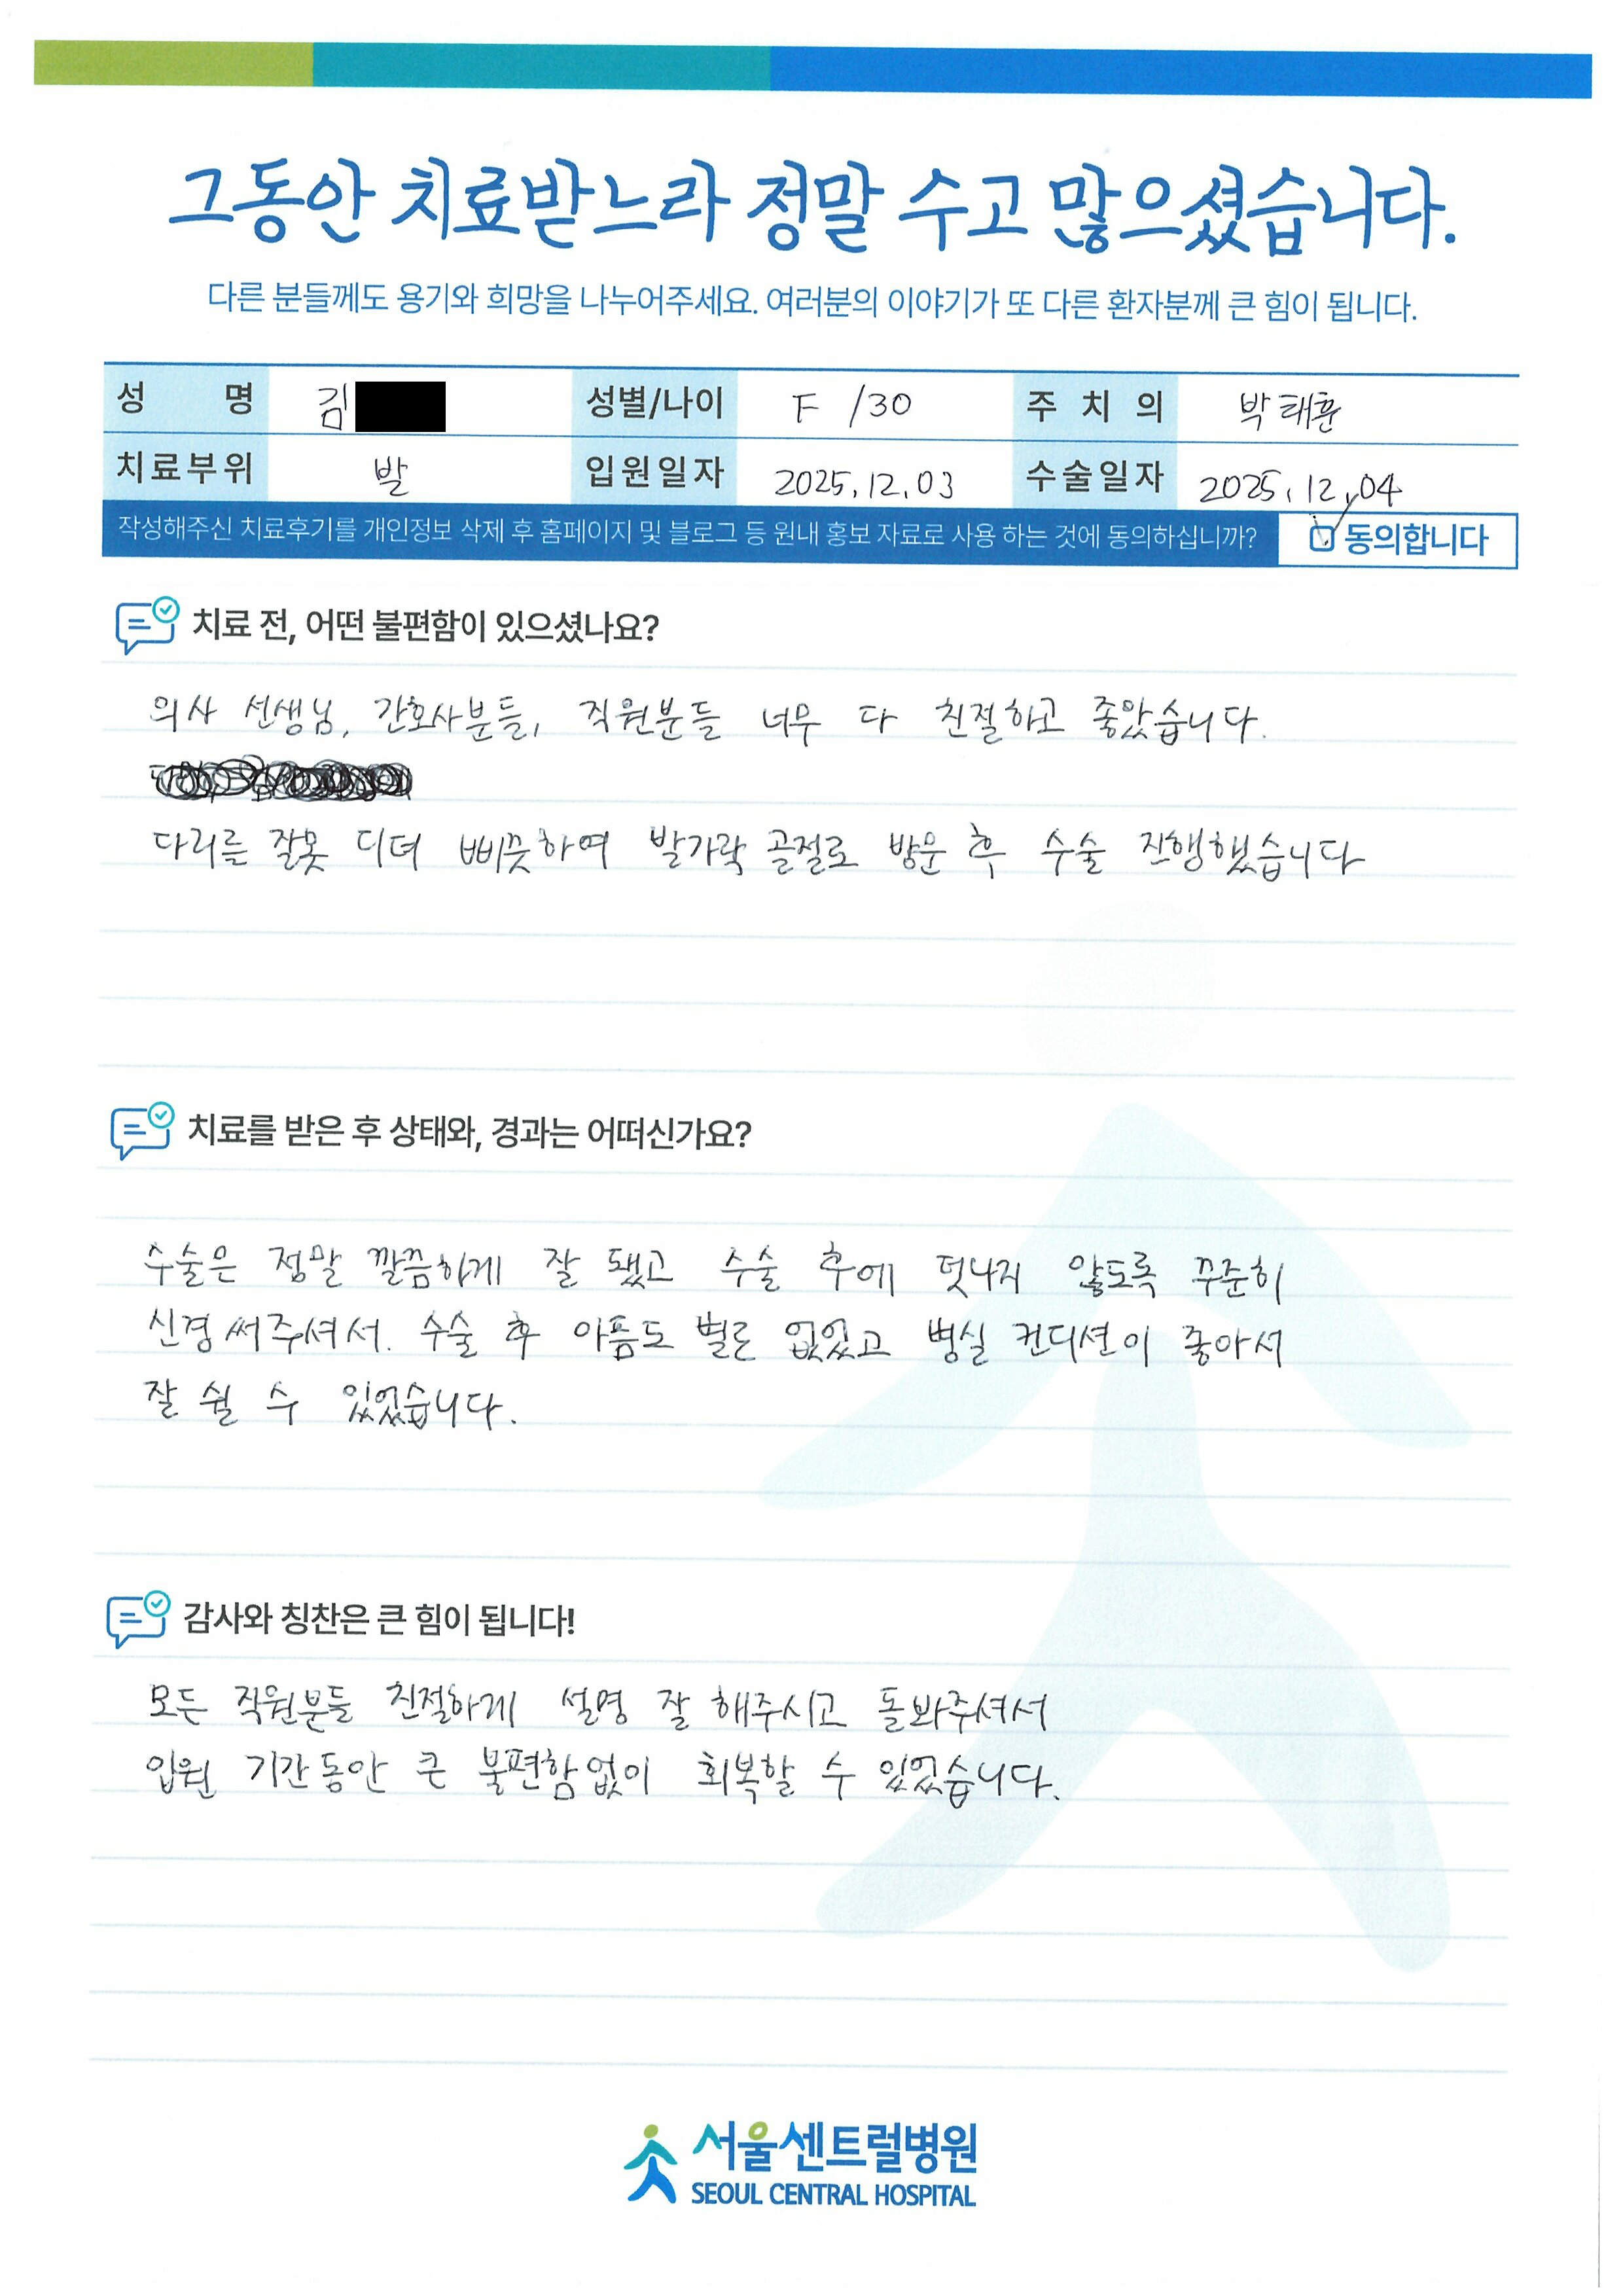 그동안 치료받느라 정말 수고 많으셨습니다.
다른 분들께도 용기와 희망을 나누어주세요. 여러분의 이야기가 또 다른 환자분께 큰 힘이 됩니다.
성 명 김 성별/나이 F /30 주 치 의 박태훈
치료부위 발 입원일자 2025.12.03 수술일자 2025.12.04
작성해주신 치료후기를 개인정보 삭제 후 홈페이지 및 블로그 등 원내 홍보 자료로 사용 하는 것에 동의하십니까? 동의합니다
치료 전, 어떤 불편함이 있으셨나요?
의사 선생님, 간호사분들, 직원분들 너무 다 친절하고 좋았습니다.
다리를 잘못 디뎌 삐끗하여 발가락 골절로 방문 후 수술 진행했습니다
치료를 받은 후 상태와, 경과는 어떠신가요?
수술은 정말 깔끔하게 잘 됐고 수술 후에 덧나지 않도록 꾸준히
신경써주셔서. 수술 후 아픔도 별로 없었고 병실 컨디션이 좋아서
잘 쉴 수 있었습니다.
감사와 칭찬은 큰 힘이 됩니다!
모든 직원분들 친절하게 설명 잘 해주시고 돌봐주셔서
입원 기간동안 큰 불편함없이 회복할 수 있었습니다.
서울센트럴병원
SEOUL CENTRAL HOSPITAL